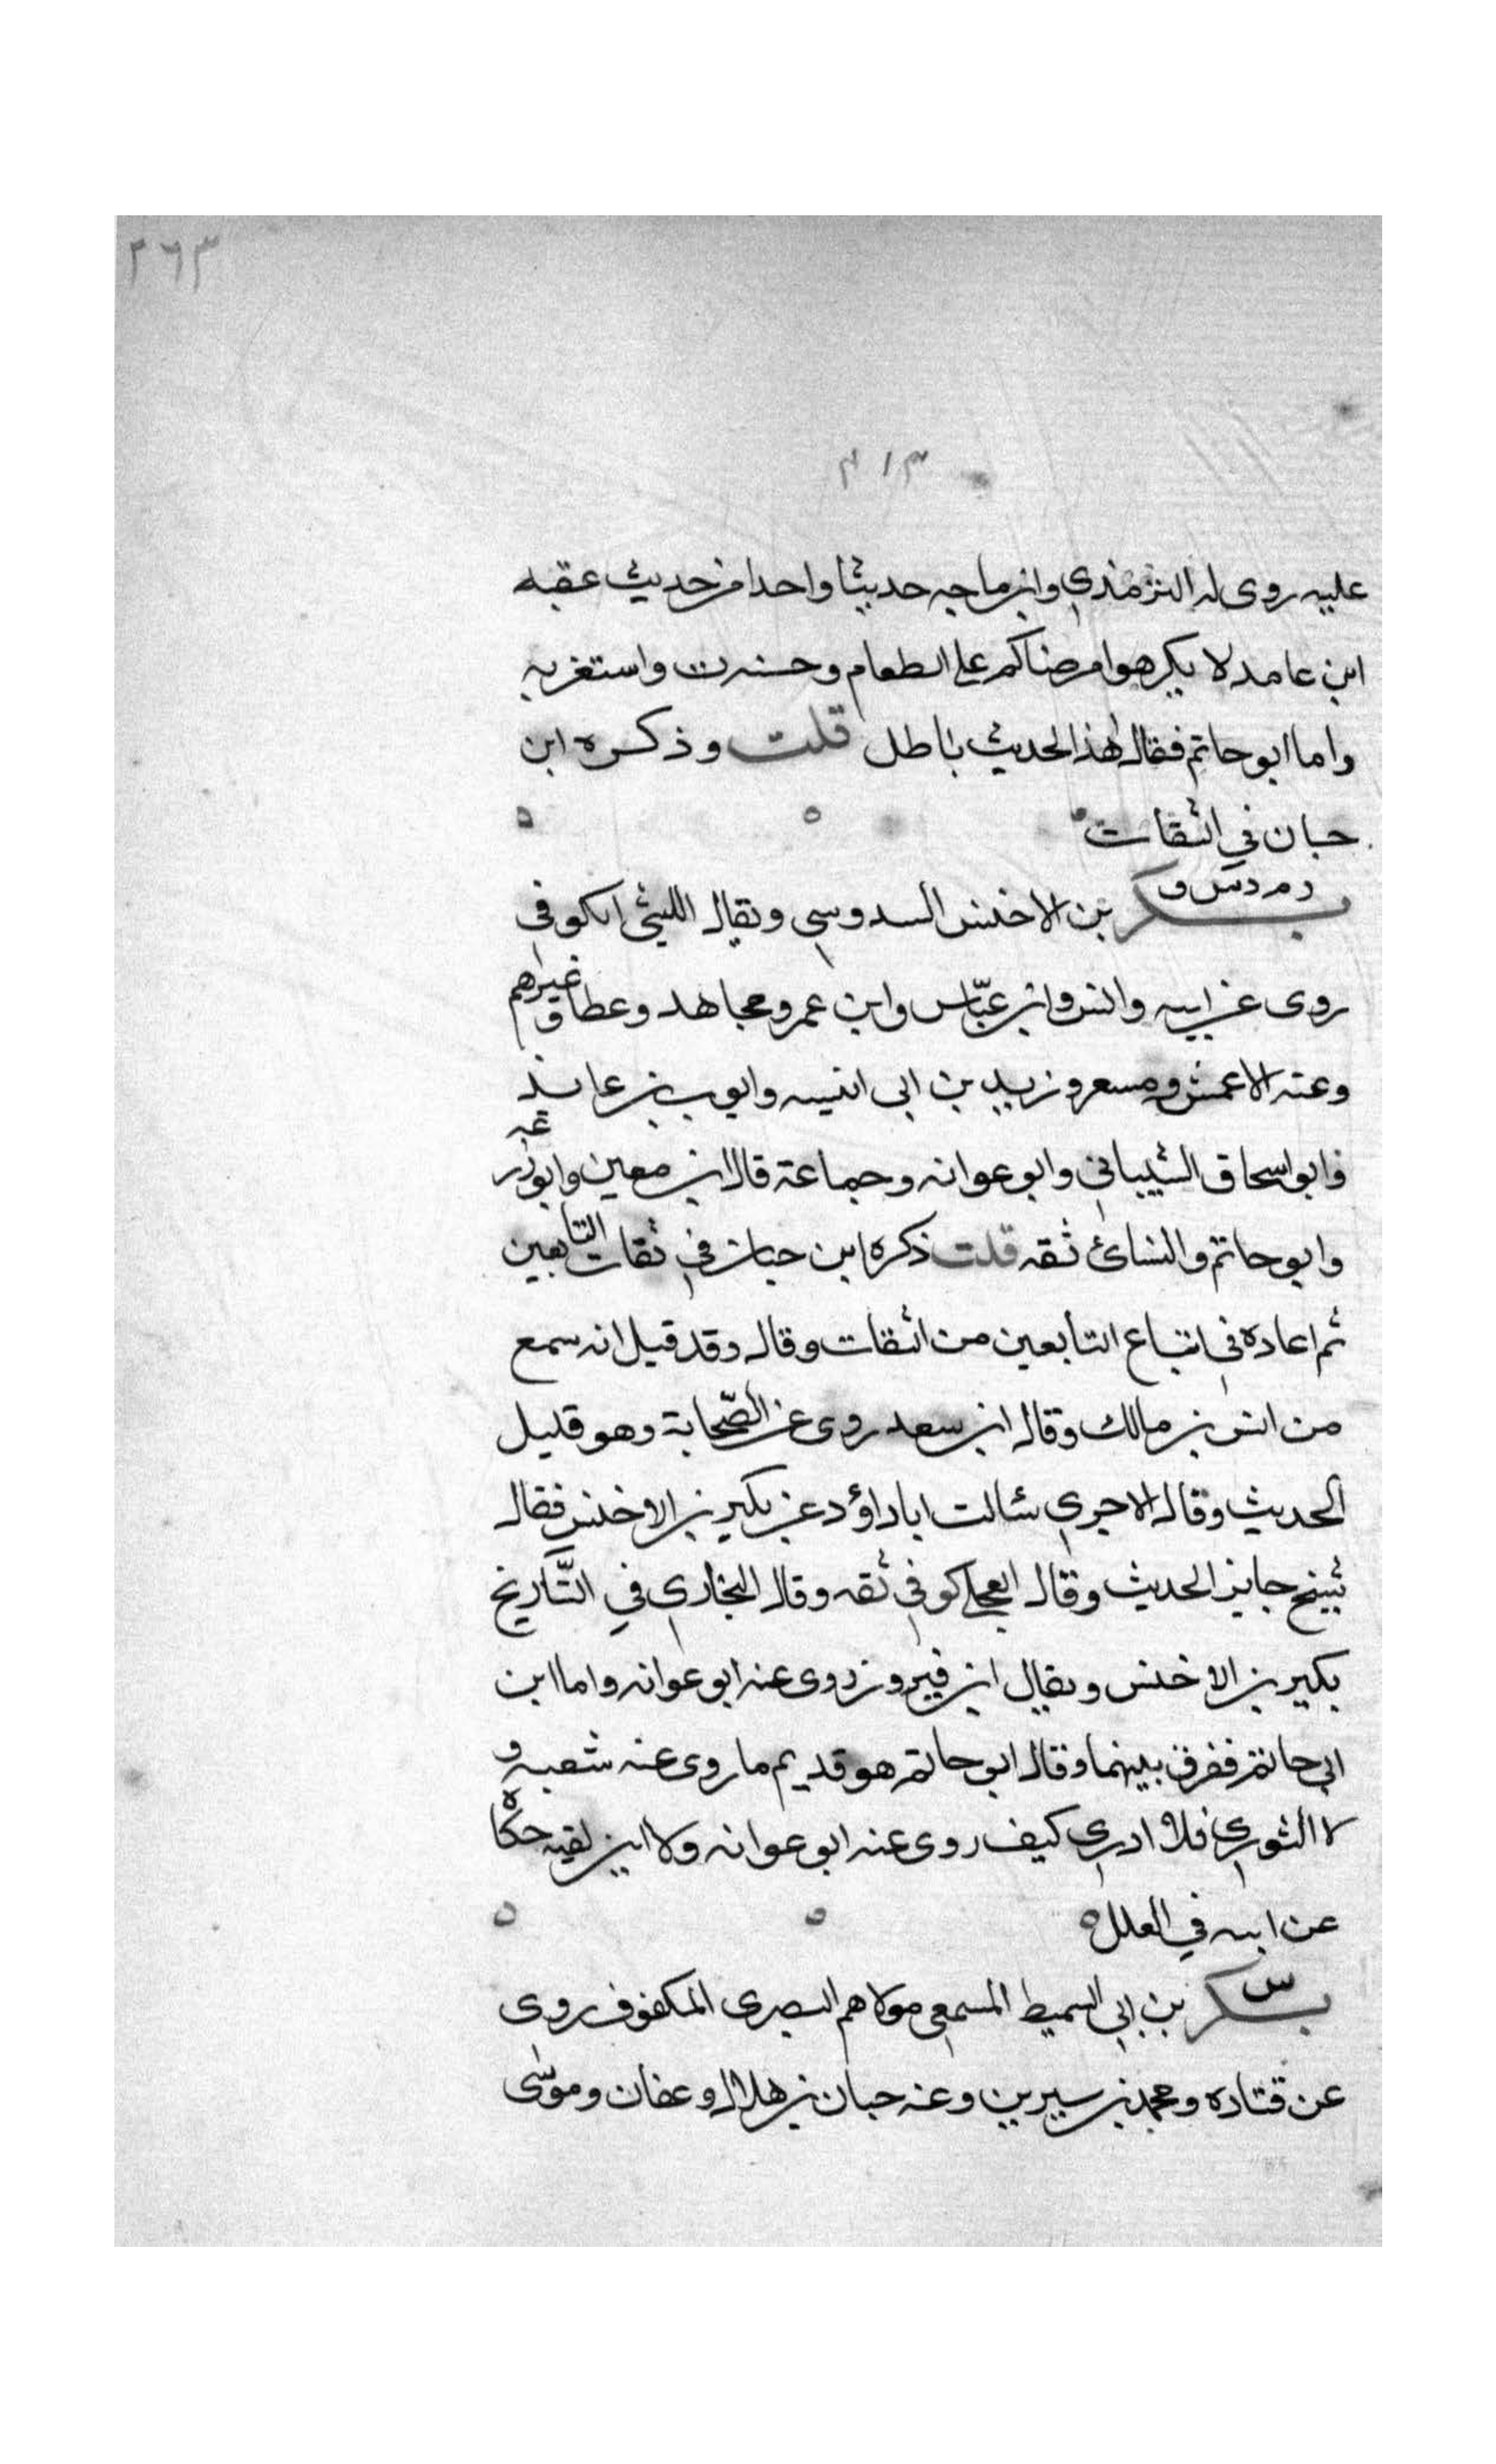 ٢٦٣
٣١٣
عليه روى له الترمذي وابن ماجه حديثا واحدا من حديث عقبه
ابن عامد لا يكرهوا مرضاكم على الطعام وحسنه ت واستغربه
واما ابو حاتم فقال هذا الحديث باطل قلت وذكره ابن
حبان في الثقات
ر م د س و
بكير بن الاخنس السدوسي ويقال الليثي الكوفي
روى عن ابيه وانس وابن عباس وابن عمر ومجاهد وعطا وغيرهم
وعنه الاعمش ومسعر وزيد بن ابي انيسه وايوب بن عائذ
وابو اسحاق الشيباني وابو عوانه وجماعة قال ابن معين وابو زرعه
وابو حاتم والنسائ ثقه قلت ذكره ابن حبان في ثقات التابعين
ثم اعاده في اتباع التابعين من الثقات وقال وقد قيل انه سمع
من انس بن مالك وقال ابن سعد روى عن الصّحابة وهو قليل
الحديث وقال الاجري سئالت ابا داؤد عن بكير بن الاخنس فقال
شيخ جايز الحديث وقال العجلي كوفي ثقه وقال البخاري في التّاريخ
بكير بن الاخنس ويقال ابن فيروز روى عنه ابو عوانه واما ابن
ابي حاتم ففرق بينهما وقال ابو حاتم هو قديم ما روى عنه شعبه و
لا الثوري فلا ادري كيف روى عنه ابو عوانه ولا اين لقيه حكاه
عن ابيه في العلل
س
بكير بن ابي السميط المسمعي مولاهم البصرى المكفوف روى
عن قتاده ومحمد بن سيرين وعنه حبان بن هلال وعفان وموسى